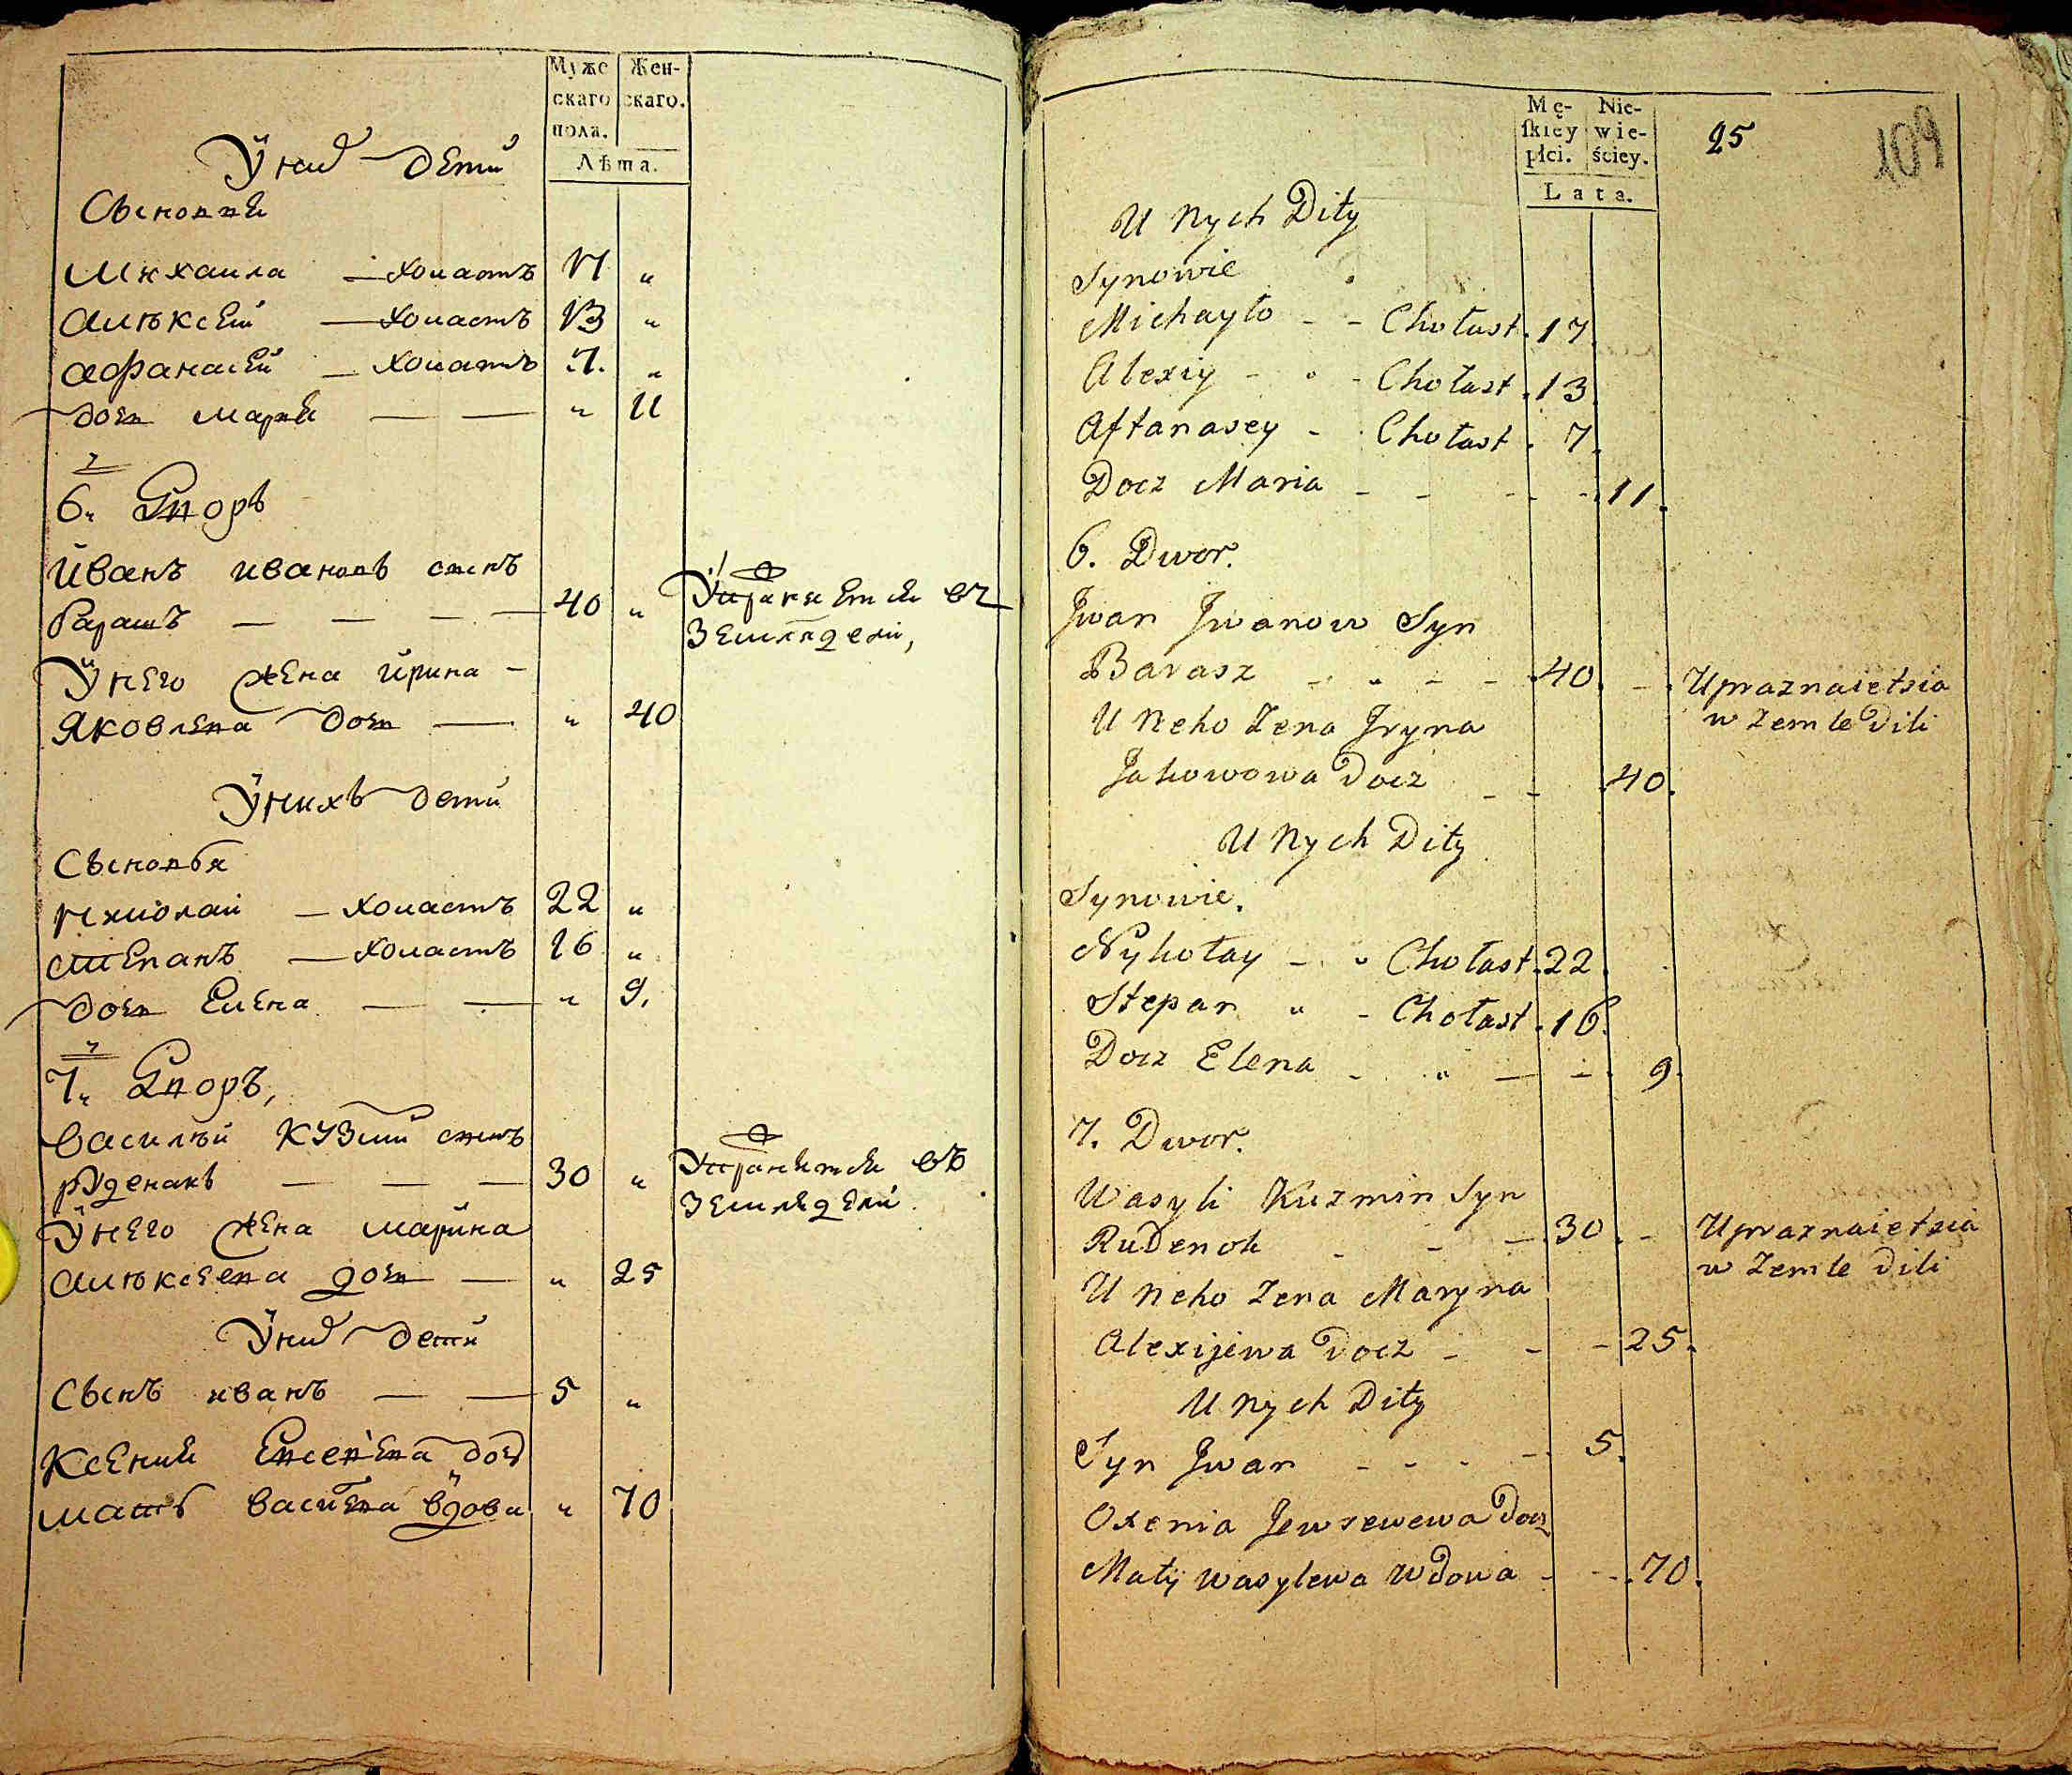 Муже
скаго
пола.
Жен-
скаго.
Лѣта.
У них дети
Сыновия
михаила — холастъ 17 „
алѣксей — холастъ 13 „
афанасей — холастъ 7. „
дочь мария — — „ 11
6. Дворъ
Иванъ ивановъ сынъ
барашъ — — — — 40 „ Упражняется въ
земледели,
У него жена ирина –
Яковлева дочь — „ 40
У нихъ дети
Сыновья
николай — холастъ 22 „
степанъ — холастъ 16 „
дочь Елена — — „ 9.
7. Дворъ,
василѣй кузмин сынъ
руденакъ — — — 30 „ Упраняется въ
земледели.
У него жена марина
алѣксеева дочь — „ 25
У них дети
Сынъ иванъ — — 5 „
Ксения Евсеева доч
мать василева вдова „ 70
Mę-
ſkiey
płci.
Nie-
wie-
ściey.
Lata.
25
109
U Nych Dity
Synowie
Michayło - - Chołast. 17.
Alexiy - „ - Chołast. 13.
Aftanasey - . Chołast. 7.
Docz Maria - - - - 11.
6. Dwor.
Jwan Jwanow Syn
Barasz - „ - - 40. - Upraznaietsia
w Zemledili
U Neho Zena Jryna
Jakowowa Docz - - 40.
U Nych Dity
Synowie.
Nykołay - „ Chołast. 22.
Stepan „ - Chołast. 16.
Docz Elena - „ — - 9.
7. Dwor.
Wasyli Kuzmin Syn
Rudenok - - — 30. - Upraznaietsia
w Zemledili
U Neho Zena Maryna
Alexijewa Docz - - - 25.
U Nych Dity
Syn Jwan - - - - 5.
Oxenia Jewsewewa Docz
Maty Wasylewa Wdowa - - 70.